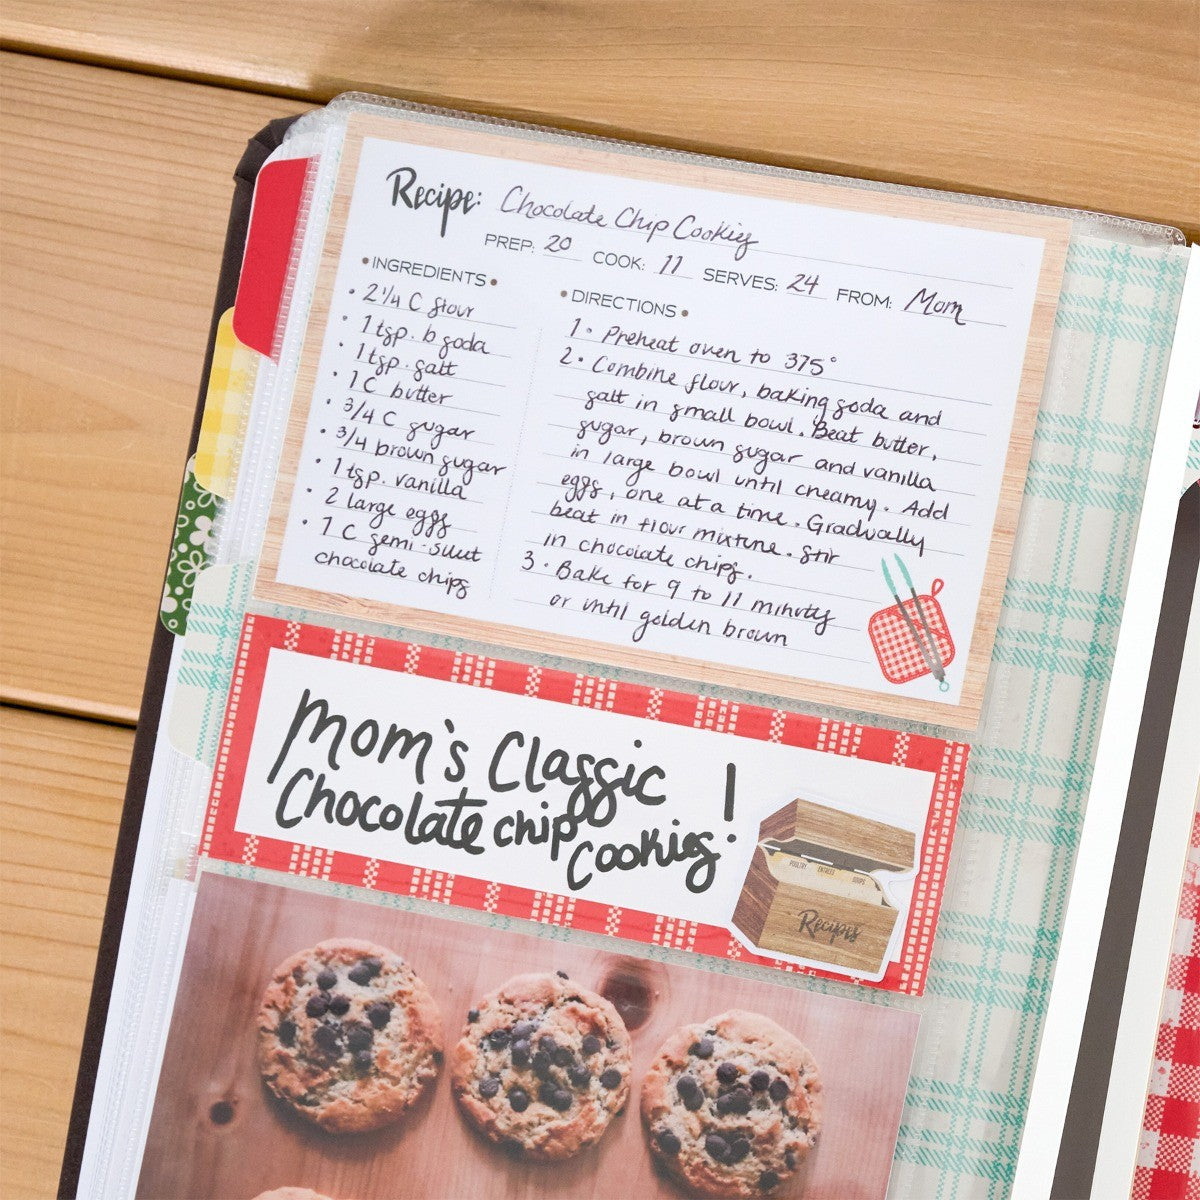 Recipe: Chocolate Chip Cookies
PREP: 20 COOK: 11 SERVES: 24 FROM: Mom
• INGREDIENTS •
• 2 1/4 C flour
• 1 tsp. b soda
• 1 tsp. salt
• 1 C butter
• 3/4 C sugar
• 3/4 brown sugar
• 1 tsp. vanilla
• 2 large eggs
• 1 C semi-sweet
chocolate chips
• DIRECTIONS •
1. Preheat oven to 375°
2. Combine flour, baking soda and
salt in small bowl. Beat butter,
sugar, brown sugar and vanilla
in large bowl until creamy. Add
eggs, one at a time. Gradually
beat in flour mixture. Stir
in chocolate chips.
3. Bake for 9 to 11 minutes
or until golden brown
Mom's Classic
Chocolate chip
Cookies!
POULTRY ENTREES SOUPS
Recipes